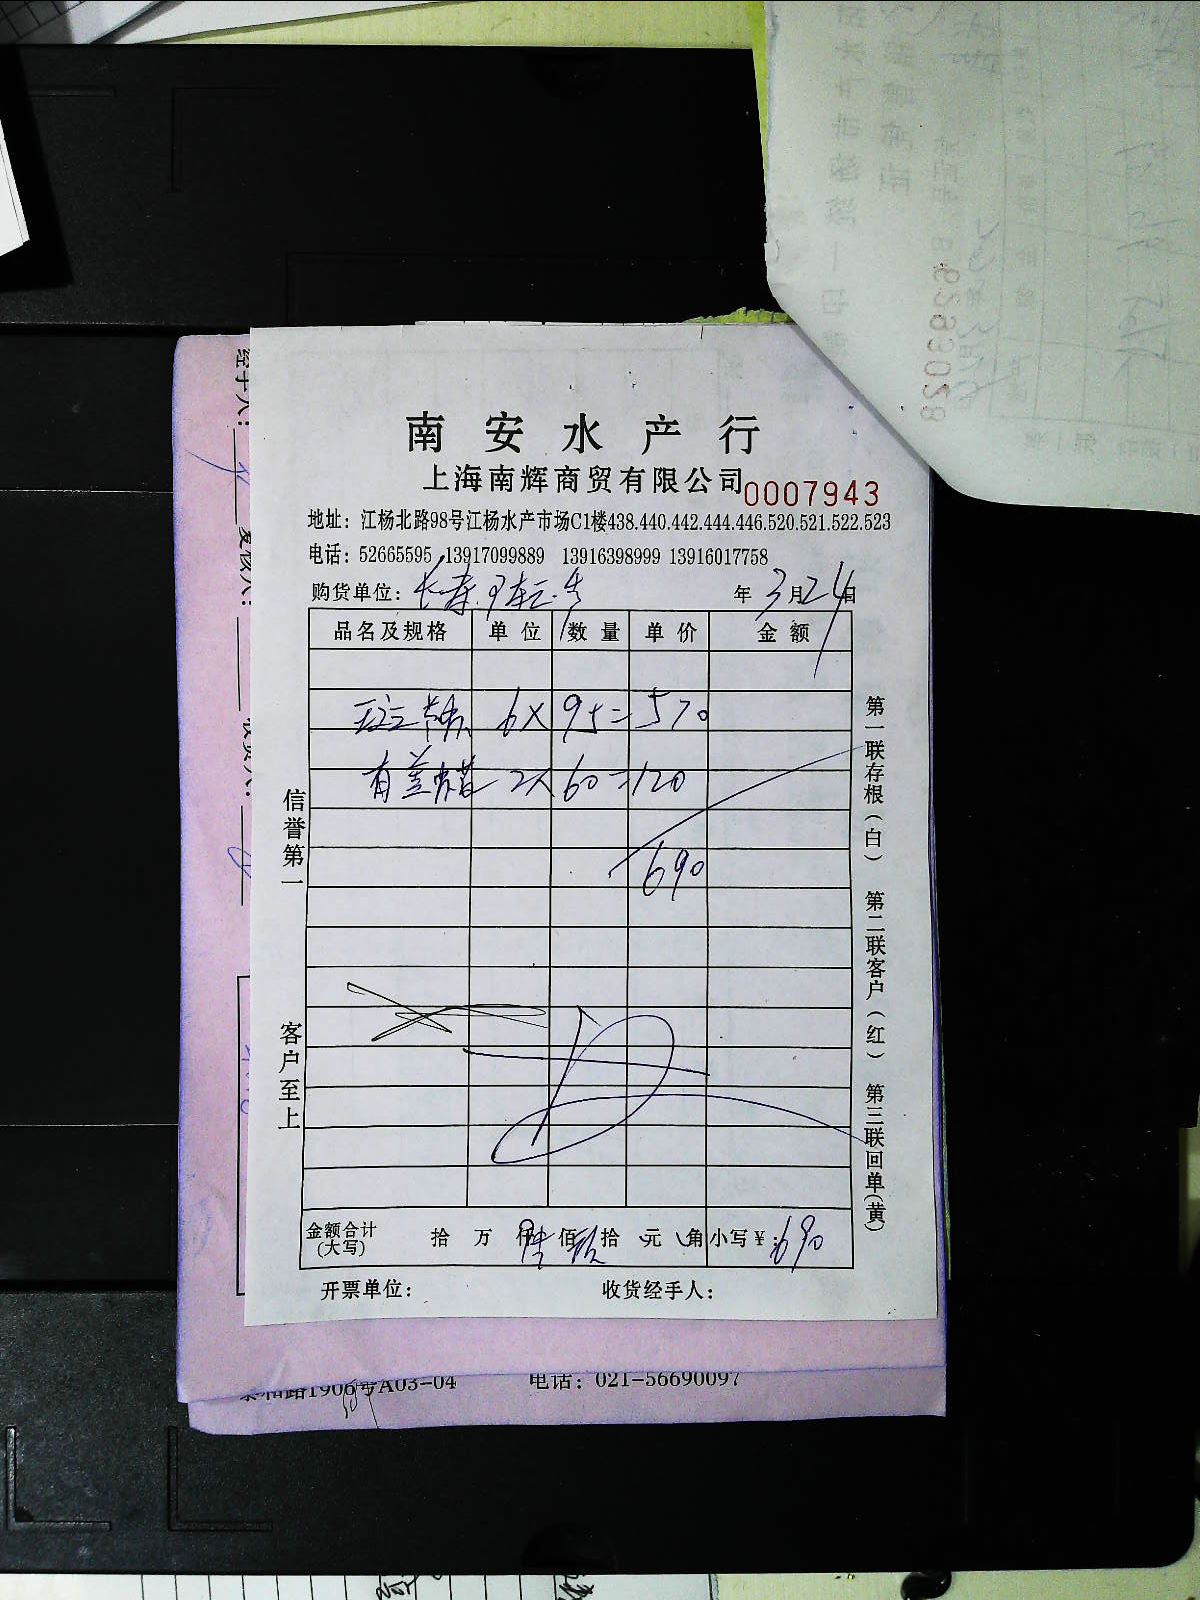 南安水产行
上海南辉商贸有限公司 0007943
地址：江杨北路98号江杨水产市场C1楼438.440.442.444.446.520.521.522.523
电话：52665595 13917099889 13916398999 13916017758
购货单位：长寿 年 3月24日
品名及规格 单位 数量 单价 金额
6×95=570
有盖 2×60=120
690
信誉第一
客户至上
第一联存根（白） 第二联客户（红） 第三联回单（黄）
金额合计（大写） 拾 万 仟 佰 拾 元 角 小写￥：690
开票单位： 收货经手人：
经手人：
复核人：
收货人：
泰和路1906号A03-04 电话：021-56690097